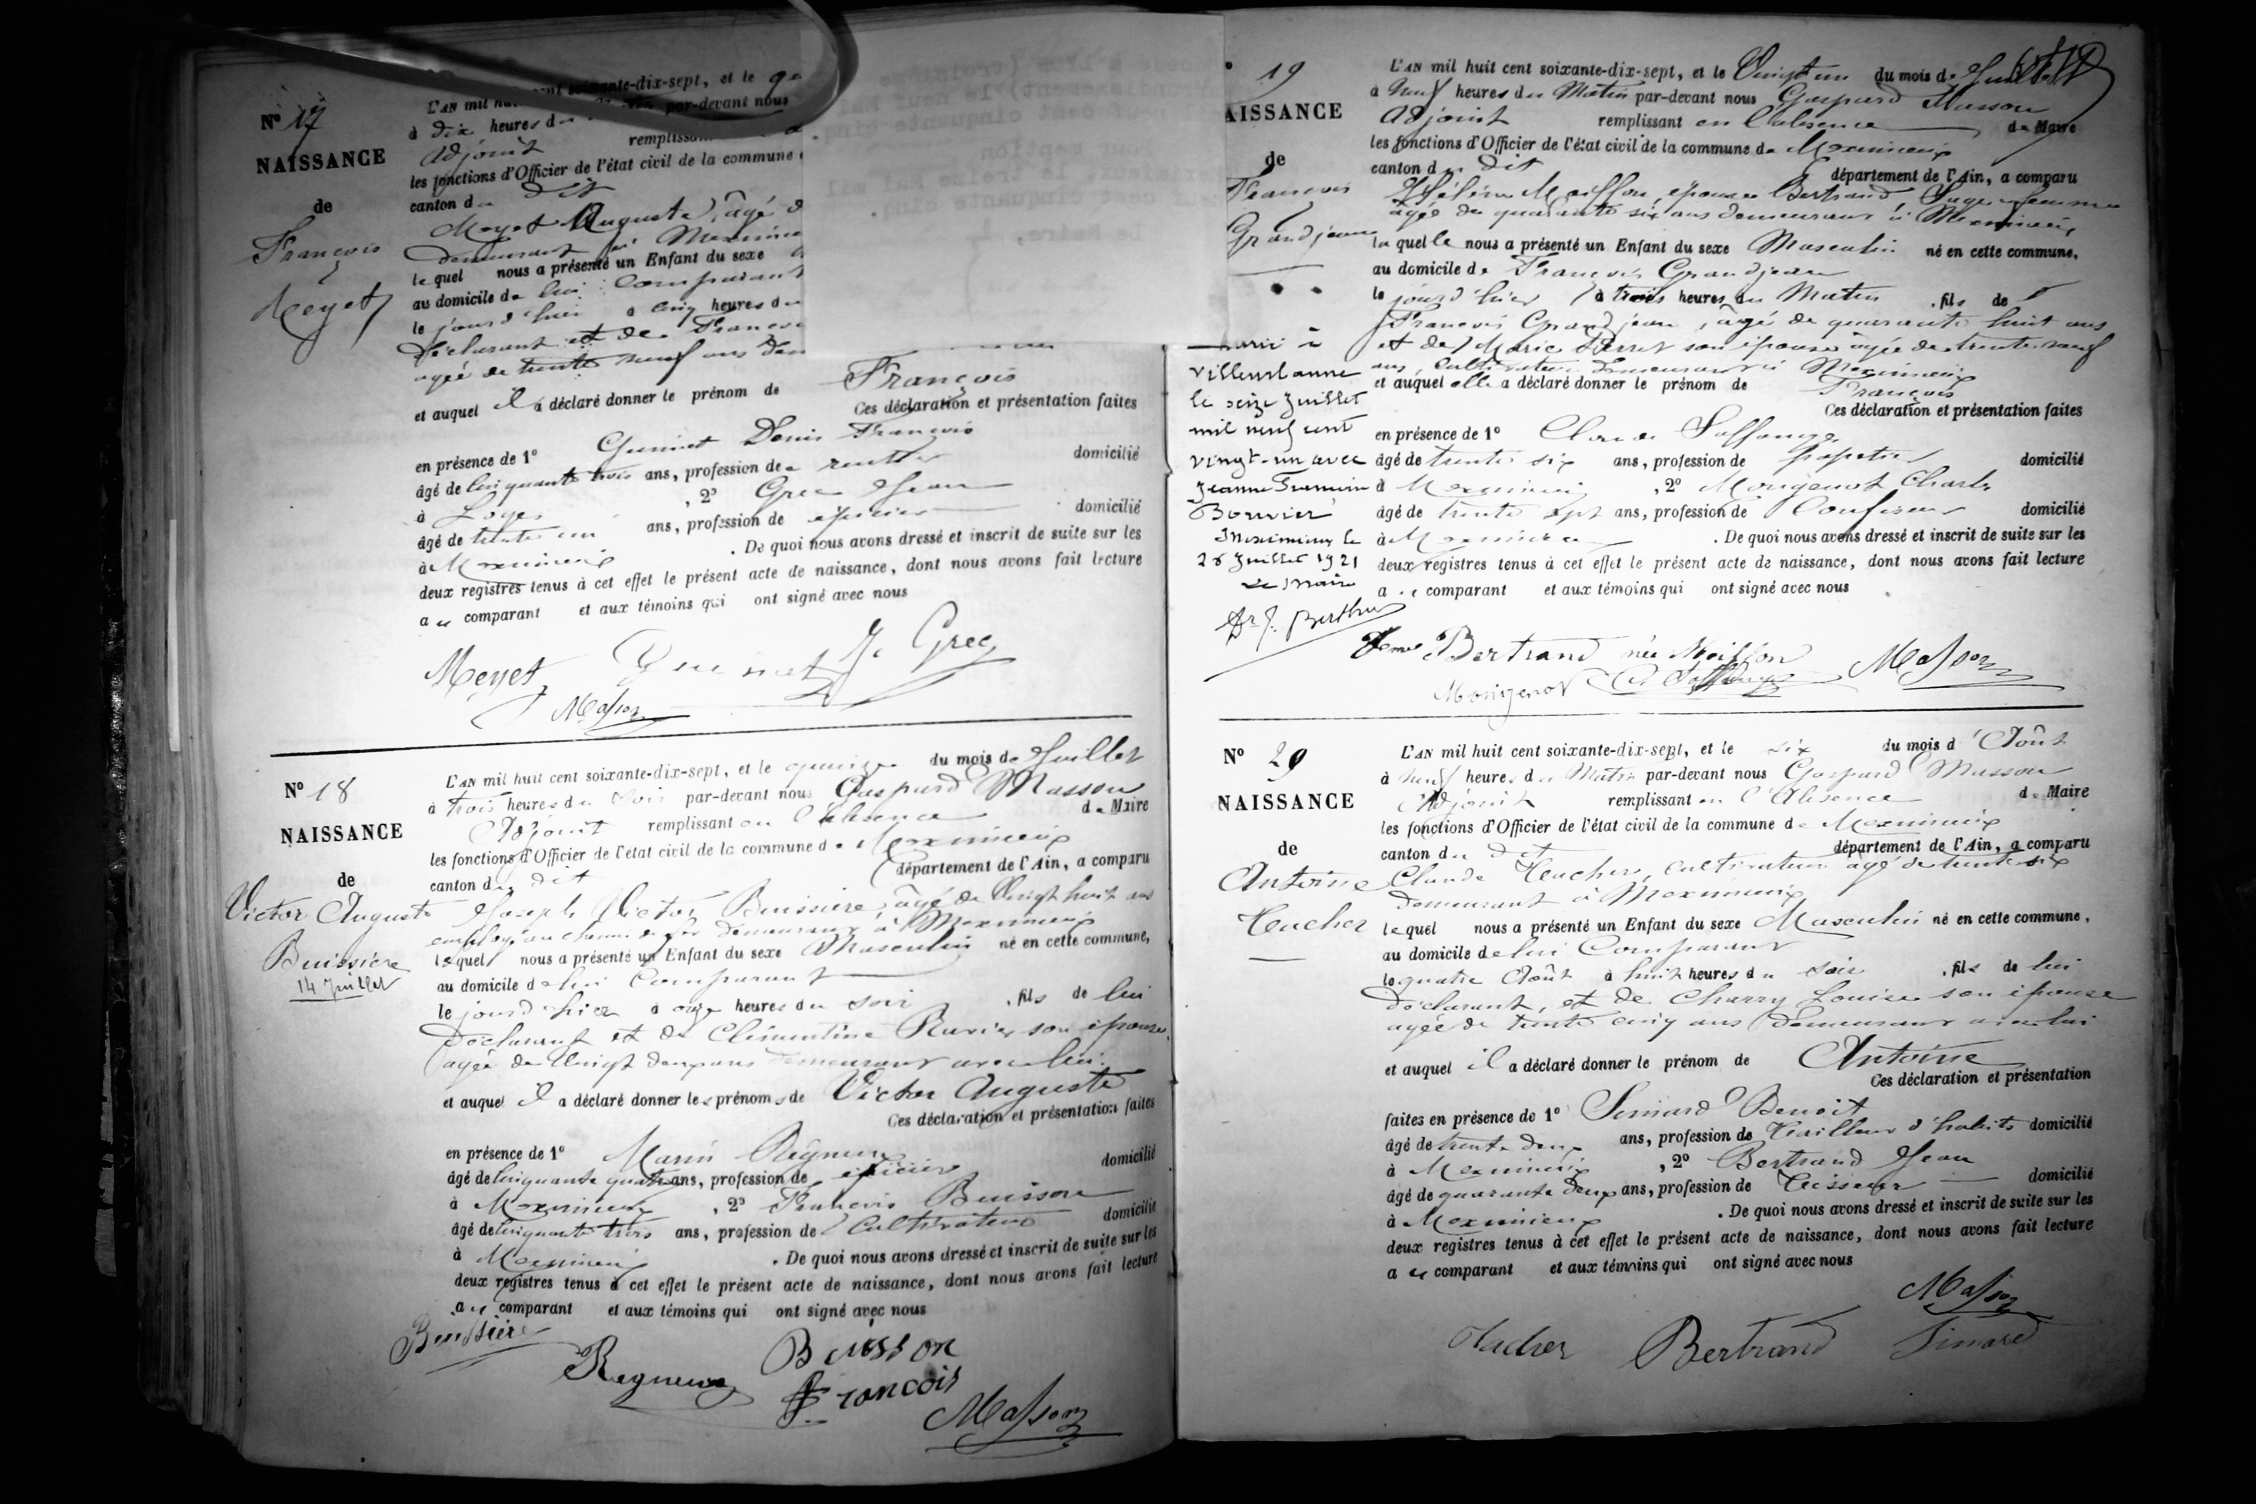 Nº 17
NAISSANCE
de
François
Meyet
soixante-dix-sept, et le
à dix heures du par-devant nous
Adjoint
les fonctions d'Officier de l'état civil de la commune
canton du dit
Meyet Auguste, âgé
demeurant à
lequel nous a présenté un Enfant du sexe
au domicile de lui comparant
le jourd'hui à cinq heures du
déclarant et de
agée de trente neuf ans
et auquel il a déclaré donner le prénom de François
Ces déclaration et présentation faites
en présence de 1º Guinet Denis François
âgé de cinquante trois ans, profession de rentier domicilié
à Loyes, 2º Grec Jean
âgé de trente un ans, profession de épicier domicilié
à Meximieux. De quoi nous avons dressé et inscrit de suite sur les
deux registres tenus à cet effet le présent acte de naissance, dont nous avons fait lecture
au comparant et aux témoins qui ont signé avec nous
Meyet Guinet J. Grec
Masson
Nº 18
NAISSANCE
de
Victor Auguste
Buissière
14 Juillet
L'AN mil huit cent soixante-dix-sept, et le quinze du mois de Juillet
à trois heures du soir par-devant nous Gaspard Masson
Adjoint remplissant en l'absence de Maire
les fonctions d'Officier de l'état civil de la commune de Meximieux
canton du dit département de l'Ain, a comparu
Joseph Victor Buissière, âgé de vingt huit ans
employé au chemin de fer demeurant à Meximieux
lequel nous a présenté un Enfant du sexe Masculin né en cette commune,
au domicile de lui Comparant
le jourd'hier à onze heures du soir, fils de lui
Déclarant et de Clémentine Ravier son épouse,
agée de vingt deux ans demeurant avec lui
et auquel il a déclaré donner les prénoms de Victor Auguste
Ces déclaration et présentation faites
en présence de 1º Marin Régneux
âgé de cinquante quatre ans, profession de épicier domicilié
à Meximieux, 2º François Buisson
âgé de cinquante trois ans, profession de Cultivateur domicilié
à Meximieux. De quoi nous avons dressé et inscrit de suite sur les
deux registres tenus à cet effet le présent acte de naissance, dont nous avons fait lecture
au comparant et aux témoins qui ont signé avec nous
Buissière
Regneux
Buisson
François
Masson
19
AISSANCE
de
François
Grandjean
L'AN mil huit cent soixante-dix-sept, et le Vingt un du mois de Juillet
à Neuf heures du Matin par-devant nous Gaspard Masson
Adjoint remplissant en l'absence de Maire
les fonctions d'Officier de l'état civil de la commune de Meximieux
canton du dit département de l'Ain, a comparu
épouse Bertrand, Sage femme
âgée de quarante six ans demeurant à Meximieux
laquelle nous a présenté un Enfant du sexe Masculin né en cette commune,
au domicile de François Grandjean
le jourd'hier à trois heures du Matin, fils de
François Grandjean, âgé de quarante huit ans
et de Marie Perret son épouse agée de trente neuf
ans, Cultivateurs demeurant à Meximieux
et auquel elle a déclaré donner le prénom de François
Ces déclaration et présentation faites
en présence de 1º
âgé de trente six ans, profession de domicilié
à Meximieux, 2º Mongenot Charles
âgé de trente sept ans, profession de Confiseur domicilié
à Meximieux. De quoi nous avons dressé et inscrit de suite sur les
deux registres tenus à cet effet le présent acte de naissance, dont nous avons fait lecture
à la comparant et aux témoins qui ont signé avec nous
à
Villeurbanne
le seize Juillet
mil neuf cent
vingt-un avec
Jeanne
Bouvier
Meximieux le
26 Juillet 1921
Le Maire
Dr J. Berthier
Feme Bertrand née
Mongenot
Masson
Nº 29
NAISSANCE
de
Antoine
Teucher
L'AN mil huit cent soixante-dix-sept, et le six du mois d'Août
à Neuf heures du Matin par-devant nous Gaspard Masson
Adjoint remplissant en l'Absence de Maire
les fonctions d'Officier de l'état civil de la commune de Meximieux
canton du dit département de l'Ain, a comparu
Claude Teucher, cultivateur âgé de trente six
demeurant à Meximieux
lequel nous a présenté un Enfant du sexe Masculin né en cette commune,
au domicile de lui Comparant
le quatre Août à huit heures du soir, fils de lui
Déclarant, et de Charry Louise son épouse
agée de trente cinq ans demeurant avec lui
et auquel il a déclaré donner le prénom de Antoine
Ces déclaration et présentation
faites en présence de 1º Simard Benoit
âgé de trente deux ans, profession de Tailleur d'habits domicilié
à Meximieux, 2º Bertrand Jean
âgé de quarante deux ans, profession de Tisseur domicilié
à Meximieux. De quoi nous avons dressé et inscrit de suite sur les
deux registres tenus à cet effet le présent acte de naissance, dont nous avons fait lecture
au comparant et aux témoins qui ont signé avec nous
Masson
Bertrand Simard